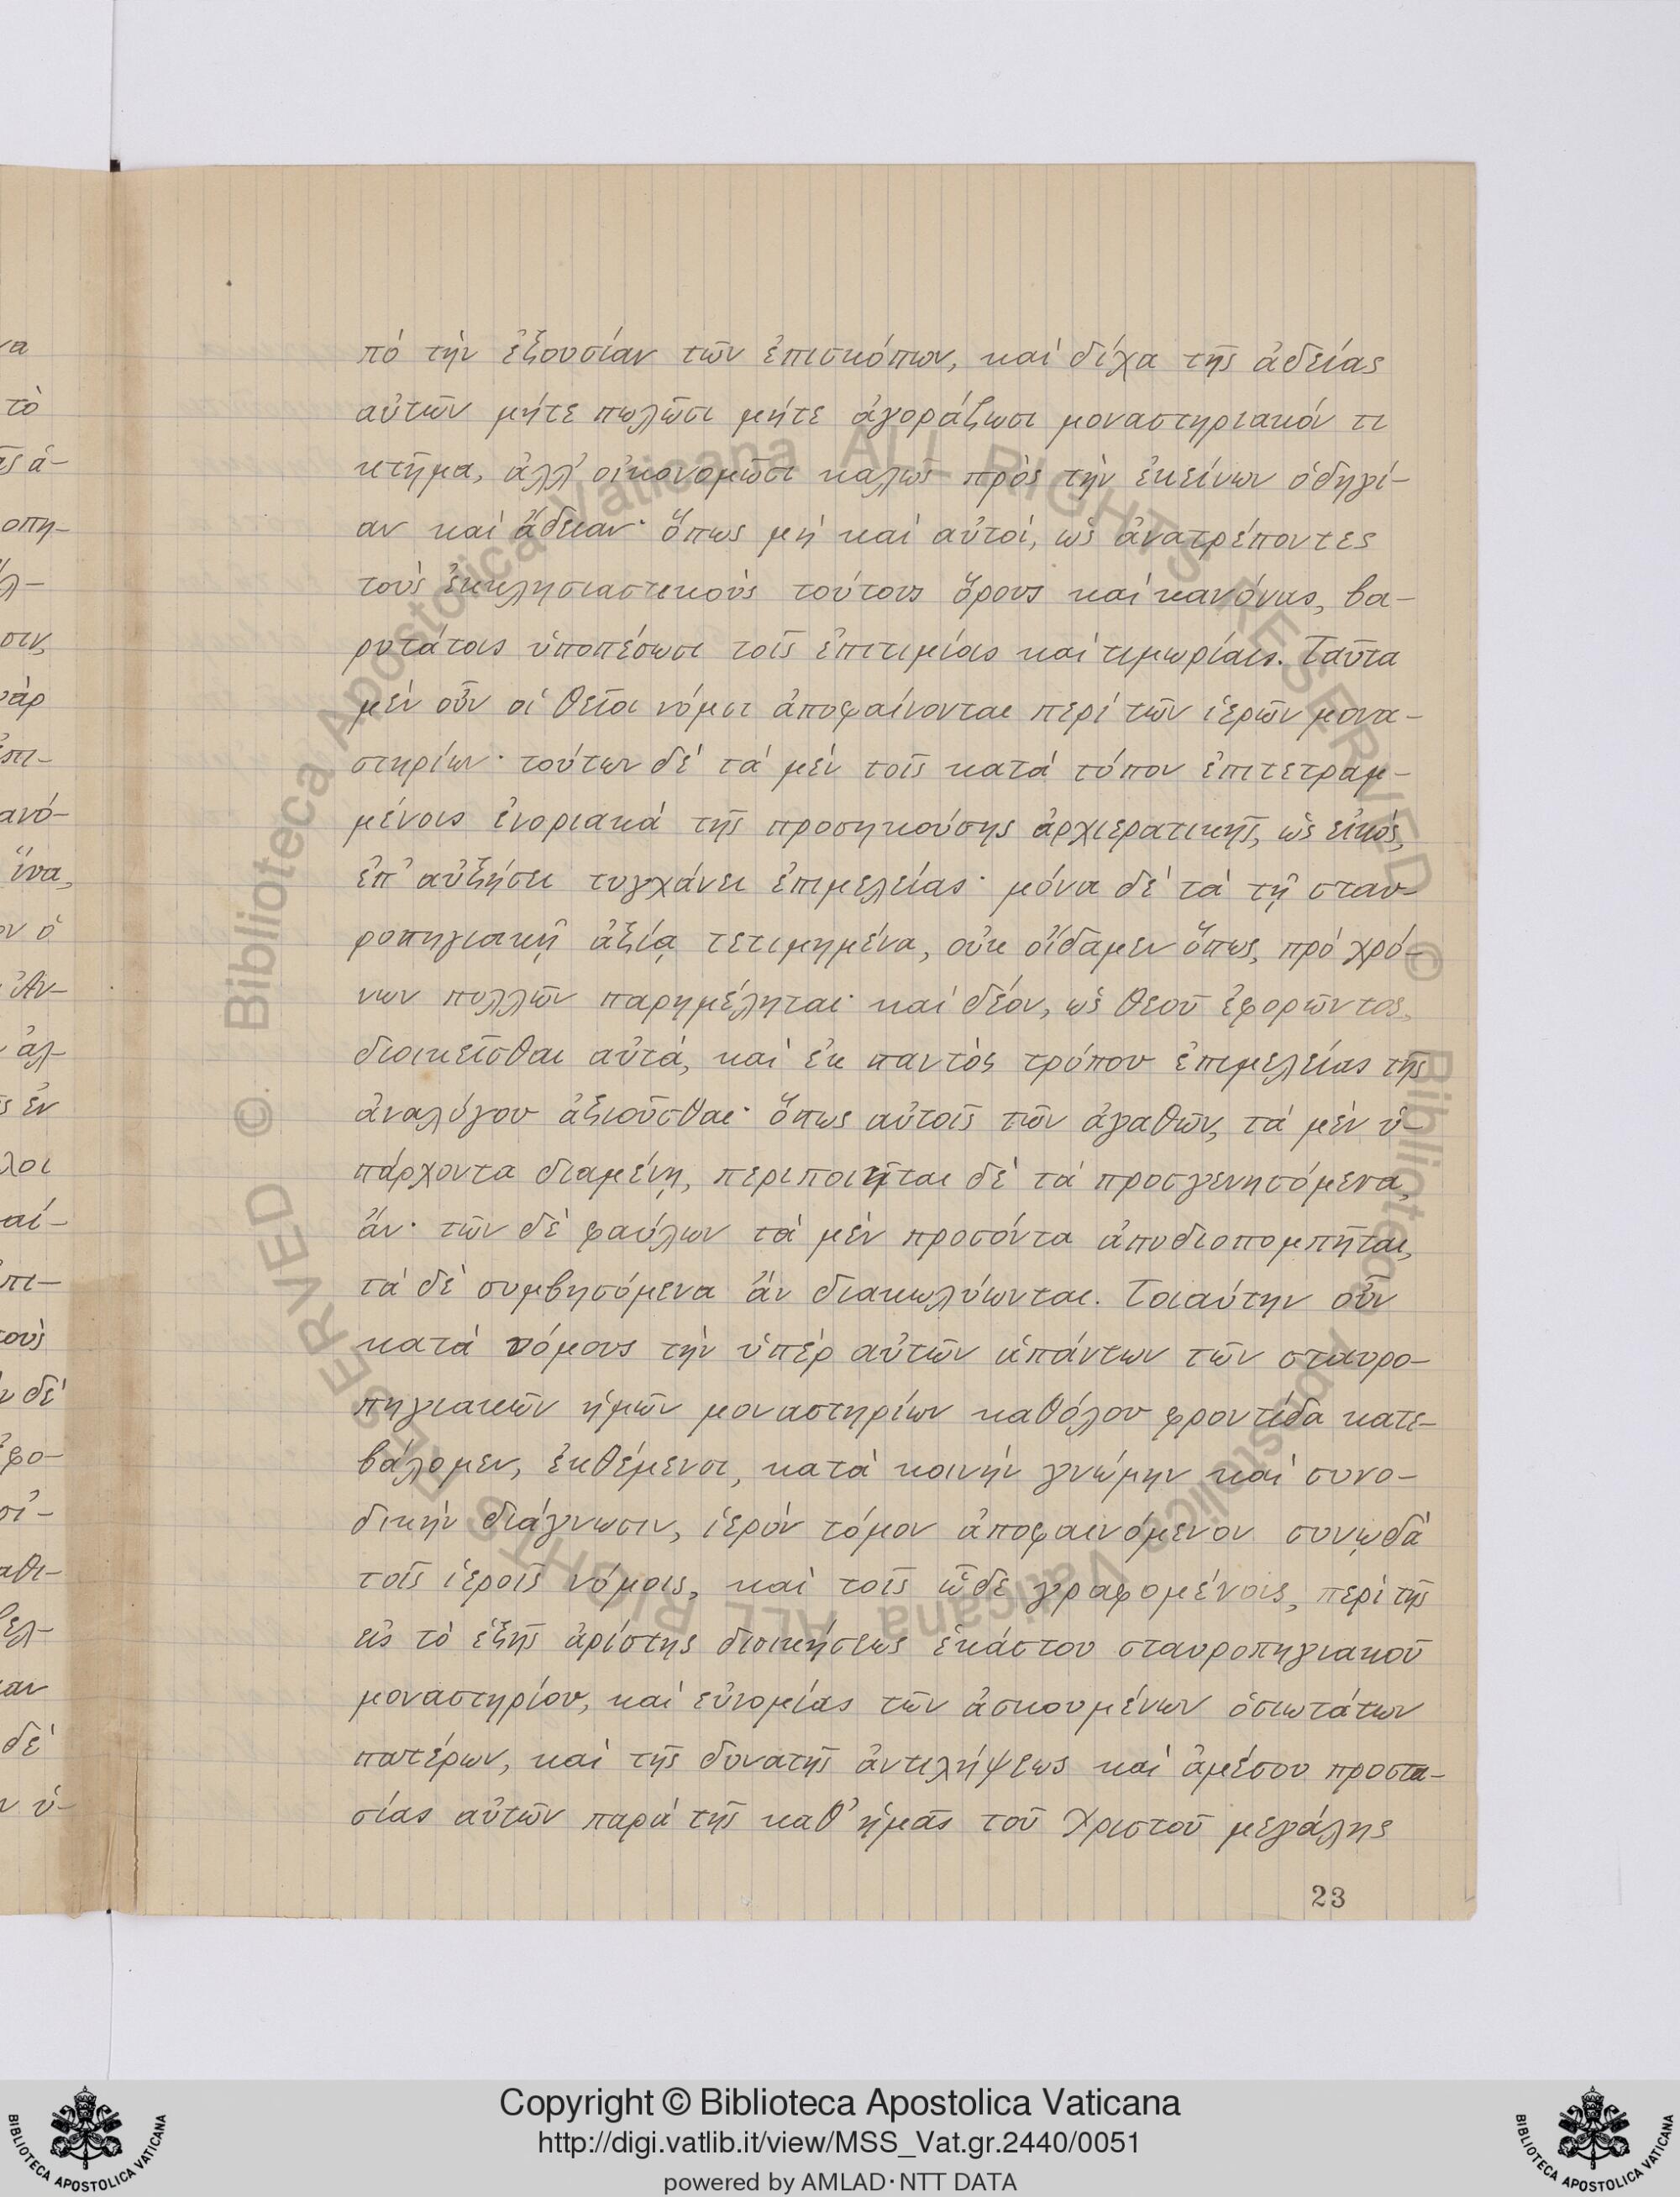 πό τὴν ἐξουσίαν τῶν ἐπισκόπων, καί δίχα τῆς ἀδείας
αὐτῶν μήτε πωλῶσι μήτε ἀγοράζωσι μοναστηριακόν τι
κτῆμα, ἀλλ' οἰκονομῶσι καλῶς πρὸς τὴν ἐκείνων ὁδηγί-
αν καί ἄδειαν· ὅπως μή καί αὐτοί, ὡς ἀνατρέποντες
τοὺς ἐκκλησιαστικοὺς τούτους ὅρους καί κανόνας, βα-
ρυτάτοις ὑποπέσωσι τοῖς ἐπιτιμίοις καί τιμωρίαις. Ταῦτα
μέν οὖν οἱ θεῖοι νόμοι ἀποφαίνονται περί τῶν ἱερῶν μονα-
στηρίων· τούτων δέ τά μέν τοῖς κατά τόπον ἐπιτετραμ-
μένοις ἐνοριακά τῆς προσηκούσης ἀρχιερατικῆς, ὡς εἰκός,
ἐπ' αὐξήσει τυγχάνει ἐπιμελείας· μόνα δέ τά τῇ σταυ-
ροπηγιακῇ ἀξίᾳ τετιμημένα, οὐκ οἴδαμεν ὅπως, πρό χρό-
νων πολλῶν παρημέληται· καί δέον, ὡς θεοῦ ἐφορῶντος,
διοικεῖσθαι αὐτά, καί ἐκ παντὸς τρόπου ἐπιμελείας τῆς
ἀναλόγου ἀξιοῦσθαι· ὅπως αὐτοῖς τῶν ἀγαθῶν, τά μέν ὑ-
πάρχοντα διαμένῃ, περιποιῆται δέ τά προσγενησόμενα,
ἄν· τῶν δέ φαύλων τά μέν προσόντα ἀποδιοπομπῆται,
τά δέ συμβησόμενα ἄν διακωλύωνται. Τοιαύτην οὖν
κατά νόμους τὴν ὑπέρ αὐτῶν ἁπάντων τῶν σταυρο-
πηγιακῶν ἡμῶν μοναστηρίων καθόλου φροντίδα κατε-
βάλομεν, ἐκθέμενοι, κατά κοινήν γνώμην καί συνο-
δικήν διάγνωσιν, ἱερόν τόμον ἀποφαινόμενον συνῳδά
τοῖς ἱεροῖς νόμοις, καί τοῖς ὧδε γραφομένοις, περί τῆς
εἰς τό ἑξῆς ἀρίστης διοικήσεως ἑκάστου σταυροπηγιακοῦ
μοναστηρίου, καί εὐνομίας τῶν ἀσκουμένων ὁσιωτάτων
πατέρων, καί τῆς δυνατῆς ἀντιλήψεως καί ἀμέσου προστα-
σίας αὐτῶν παρά τῆς καθ' ἡμᾶς τοῦ Χριστοῦ μεγάλης
23
Copyright © Biblioteca Apostolica Vaticana
http://digi.vatlib.it/view/MSS_Vat.gr.2440/0051
powered by AMLAD·NTT DATA